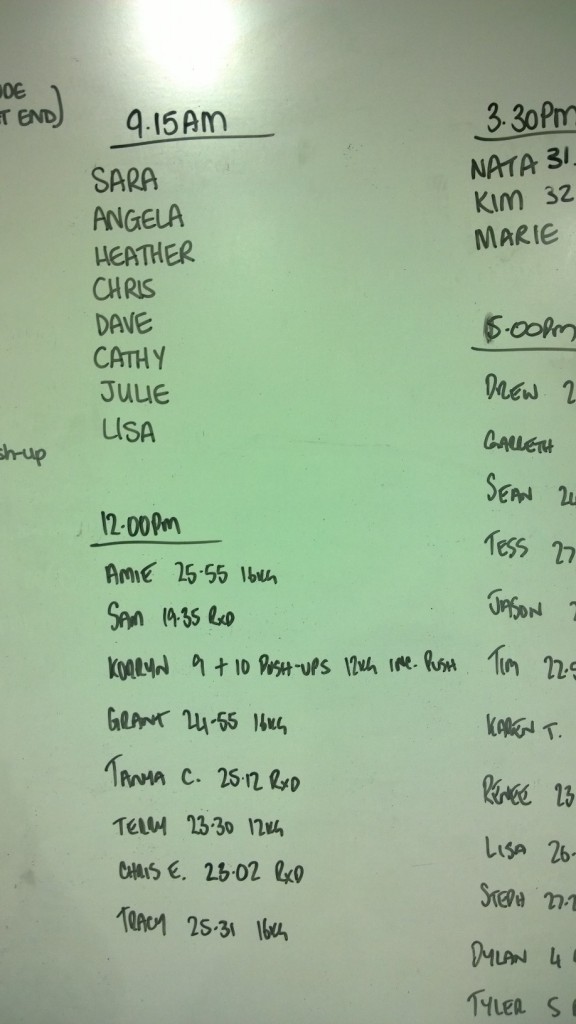 T END)
9.15AM
SARA
ANGELA
HEATHER
CHRIS
DAVE
CATHY
JULIE
LISA
sh-up
12.00PM
AMIE 25-55 16KG
SAM 19.35 RxD
KORRYN 9 + 10 PUSH-UPS 12KG INC. PUSH
GRANT 24-55 16KG
TANYA C. 25.12 RxD
TERRY 23.30 12KG
CHRIS E. 23.02 RxD
TRACY 25.31 16KG
3.30PM
NATA 31.
KIM 32
MARIE
5.00PM
DREW 2
GARRETH
SEAN
TESS 27
JASON
TIM 22.
KAREN T.
RENEE 23
LISA 26.
STEPH 27.
DYLAN 4
TYLER 5